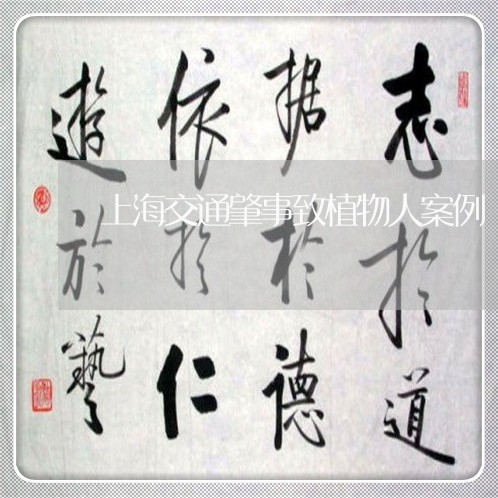 志於道
据於德
依於仁
遊於藝
上海交通肇事致植物人案例